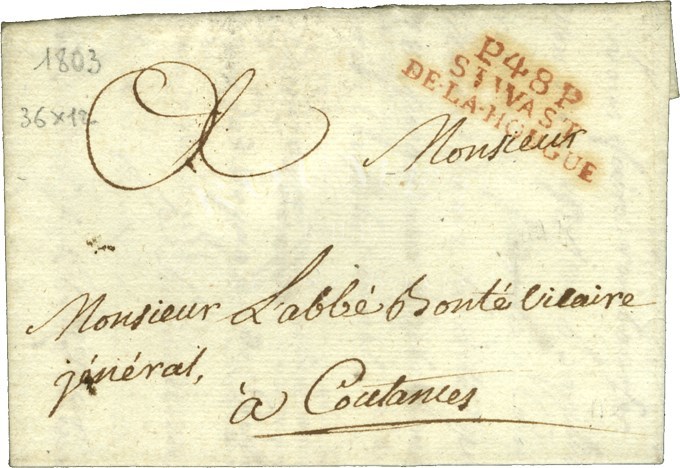 1803
36x12
P48P
ST WAST
DE-LA-HOUGUE
Monsieur
Monsieur L'abbé Bonté Vicaire
général,
à Coutances